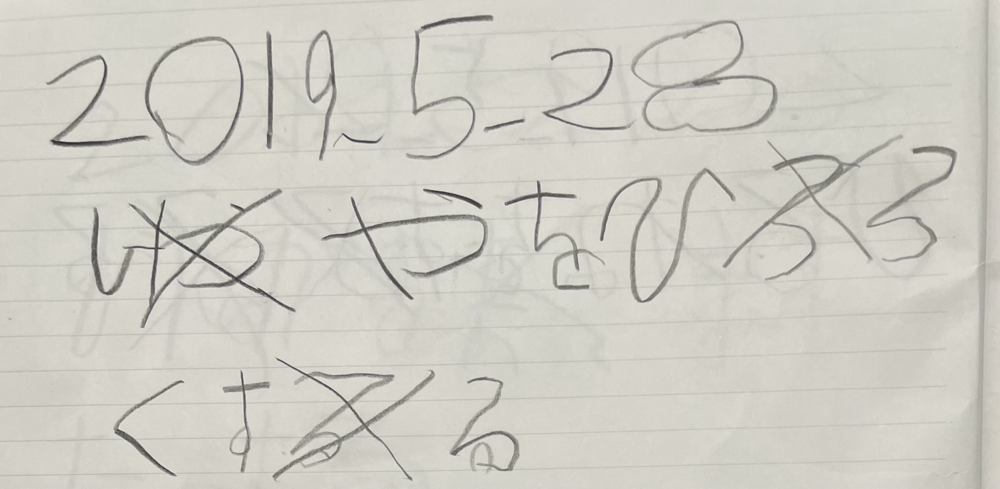 2019-5-28
いやをひろ
くする